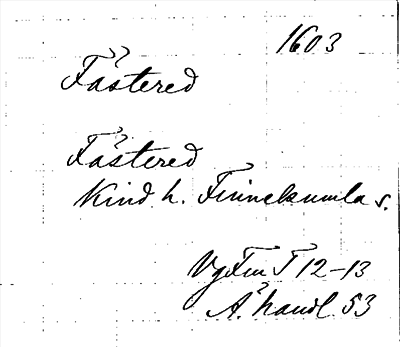 1603
Fåstered
Fåstered
Kind h. Finnekumla s.
VgFmT 12-13
Å. handl 53